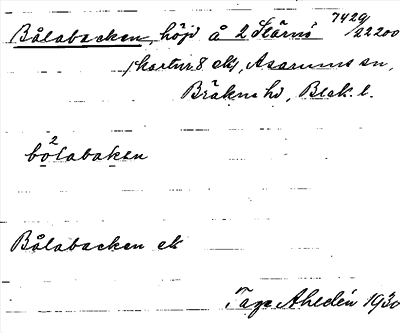 Bålabacken, höjd å 2 Stärnö 7429/22200
(kartur. 8 ek), Asarums sn,
Bräkne hd, Blek. l.
bo²labakən
Bålabacken ek
Tage Ahldén 1930